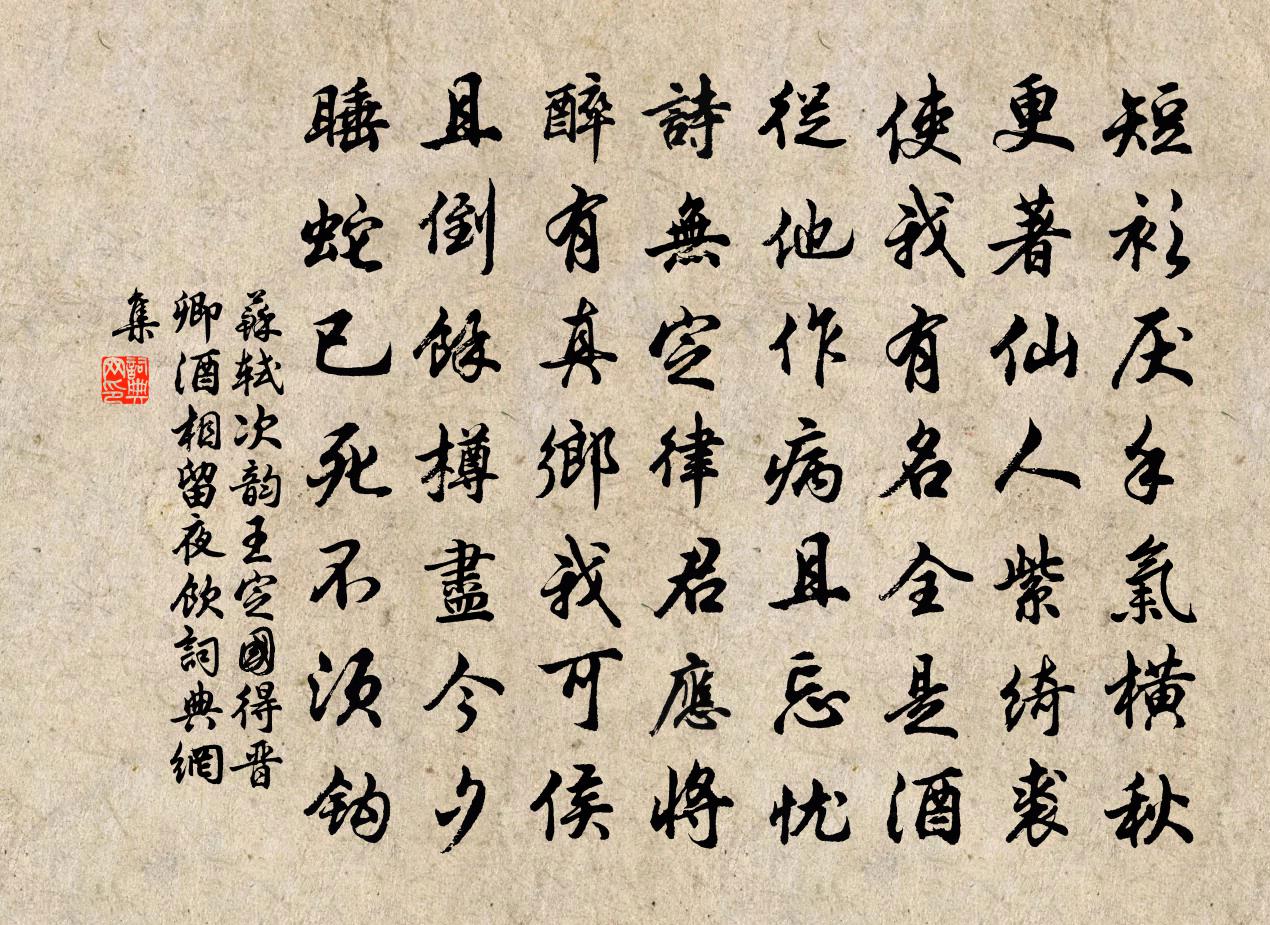 短衫厌手氣橫秋
更著仙人紫綺裘
使我有名全是酒
從他作病且忘忧
詩無定律君應將
醉有真鄉我可侯
且倒餘樽盡今夕
睡蛇已死不須鈎
蘇軾次韵王定國得晋
卿酒相留夜飲詞典網
集
詞典
网印